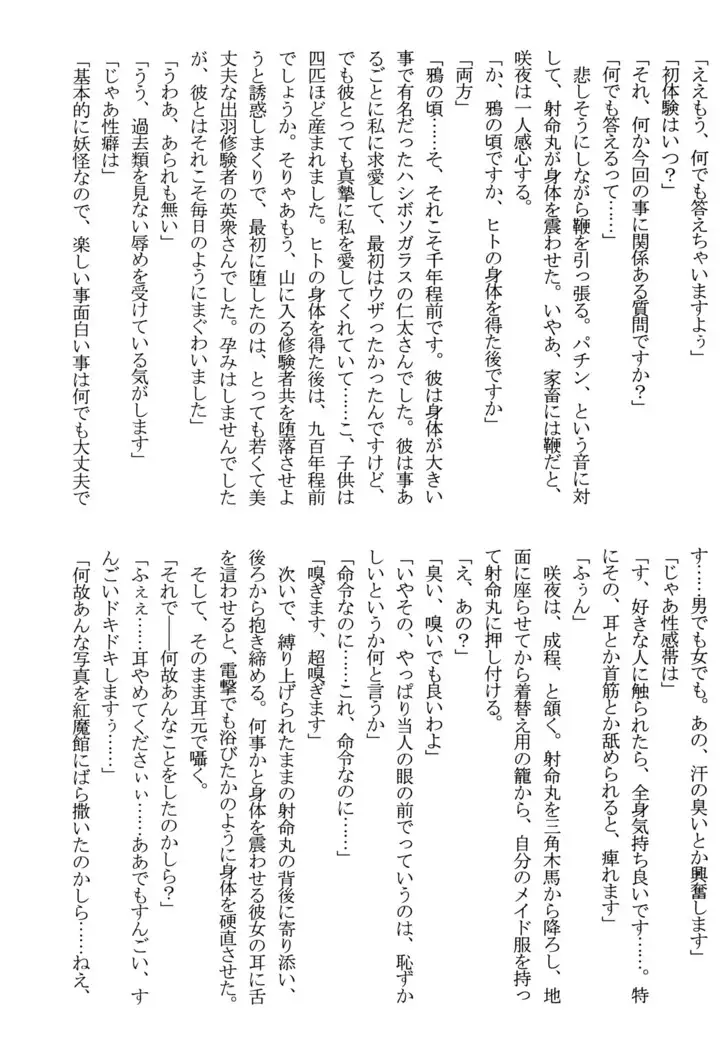 「ええもう、何でも答えちゃいますよぅ」
「初体験はいつ？」
「それ、何か今回の事に関係ある質問ですか？」
「何でも答えるって……」
悲しそうにしながら鞭を引っ張る。パチン、という音に対
して、射命丸が身体を震わせた。いやあ、家畜には鞭だと、
咲夜は一人感心する。
「か、鴉の頃ですか、ヒトの身体を得た後ですか」
「両方」
「鴉の頃……そ、それこそ千年程前です。彼は身体が大きい
事で有名だったハシボソガラスの仁太さんでした。彼は事あ
るごとに私に求愛して、最初はウザったかったんですけど、
でも彼とっても真摯に私を愛してくれていて……こ、子供は
四匹ほど産まれました。ヒトの身体を得た後は、九百年程前
でしょうか。そりゃあもう、山に入る修験者共を堕落させよ
うと誘惑しまくりで、最初に堕したのは、とっても若くて美
丈夫な出羽修験者の英衆さんでした。孕みはしませんでした
が、彼とはそれこそ毎日のようにまぐわいました」
「うわあ、あられも無い」
「うう、過去類を見ない辱めを受けている気がします」
「じゃあ性癖は」
「基本的に妖怪なので、楽しい事面白い事は何でも大丈夫で
す……男でも女でも。あの、汗の臭いとか興奮します」
「じゃあ性感帯は」
「す、好きな人に触られたら、全身気持ち良いです……。特
にその、耳とか首筋とか舐められると、痺れます」
「ふぅん」
咲夜は、成程、と頷く。射命丸を三角木馬から降ろし、地
面に座らせてから着替え用の籠から、自分のメイド服を持っ
て射命丸に押し付ける。
「え、あの？」
「臭い、嗅いでも良いわよ」
「いやその、やっぱり当人の眼の前でっていうのは、恥ずか
しいというか何と言うか」
「命令なのに……これ、命令なのに……」
「嗅ぎます、超嗅ぎます」
次いで、縛り上げられたままの射命丸の背後に寄り添い、
後ろから抱き締める。何事かと身体を震わせる彼女の耳に舌
を這わせると、電撃でも浴びたかのように身体を硬直させた。
そして、そのまま耳元で囁く。
「それで――何故あんなことをしたのかしら？」
「ふぇぇ……耳やめてくださぃぃ……ああでもすんごい、す
んごいドキドキしますぅ……」
「何故あんな写真を紅魔館にばら撒いたのかしら……ねえ、